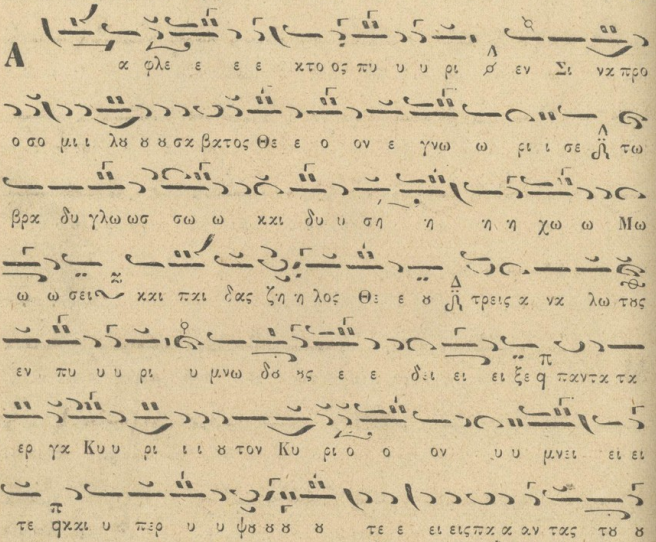 Α α φλε ε ε ε κτο ος πυ υ υ ρι εν Σι να προ
ο σο μι ι λȣ ȣ ȣ σα βατος Θε ε ο ον ε γνω ω ρι ι σε τω
βρα δυ γλω ωσ σω ω και δυ υ ση η η η χω ω Μω
ω ω σει και παι δας ζη η λος Θε ε ȣ τρεις α να λω τȣς
εν πυ υ υ ρι υ μνω δȣ ȣς ε ε δει ει ει ξε παντα τα
ερ γα Κυ υ ρι ι ι ȣ τον Κυ ρι ο ο ον υ υ μνει ει ει
τε και υ περ υ υ ψȣ ȣ ȣ ȣ τε ε ει εις πα α αν τας τȣ ȣ